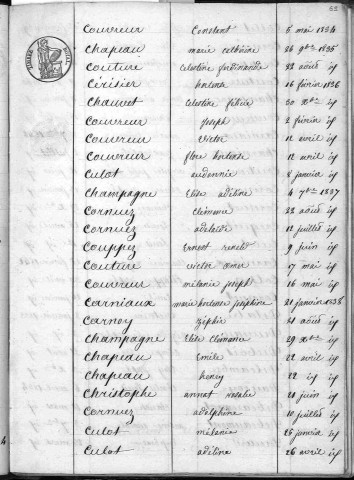 53
Couvreur Constant 5 mai 1834
Chapeau marie celtoine 26 9bre 1835
Couture Celestine ferdinande 22 août id
Cérisier hortense 16 fevrier 1836
Chauvet Celestine félicie 20 Xbre id
Couvreur joseph 2 fevrier id
Couvreur victor 11 avril id
Couvreur flore hortense 12 avril id
Culot audonnie 8 janvier id
Champagne Elise adeline 4 7bre 1837
Cornuez clémence 22 août id
Cornuez adelaide 12 juillet id
Couppez Ernest 9 juin id
Couture victor omer 7 mai id
Couvreur mélanie joseph 16 mai id
Carniaux marie hortense joséphine 21 janvier 1838
Carnoy zéphir 31 août id
Champagne Elise clémence 29 Xbre id
Chapeau Emile 22 avril id
Chapeau henry 22 id id
Christophe rosalie 21 juin id
Cornuez adolphine 10 juillet id
Culot mélanie 25 janvier id
Culot adeline 26 avril id